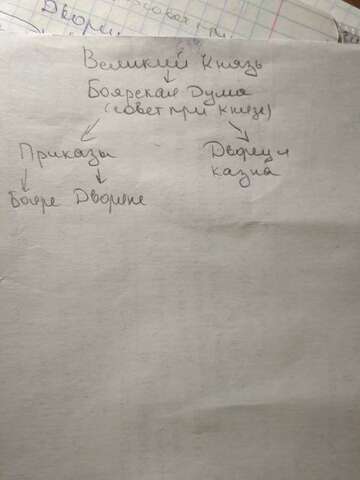 Дворец
Великий Князь
Боярская Дума
(совет при князе)
Приказы
Дворец и
казна
Бояре Дворяне